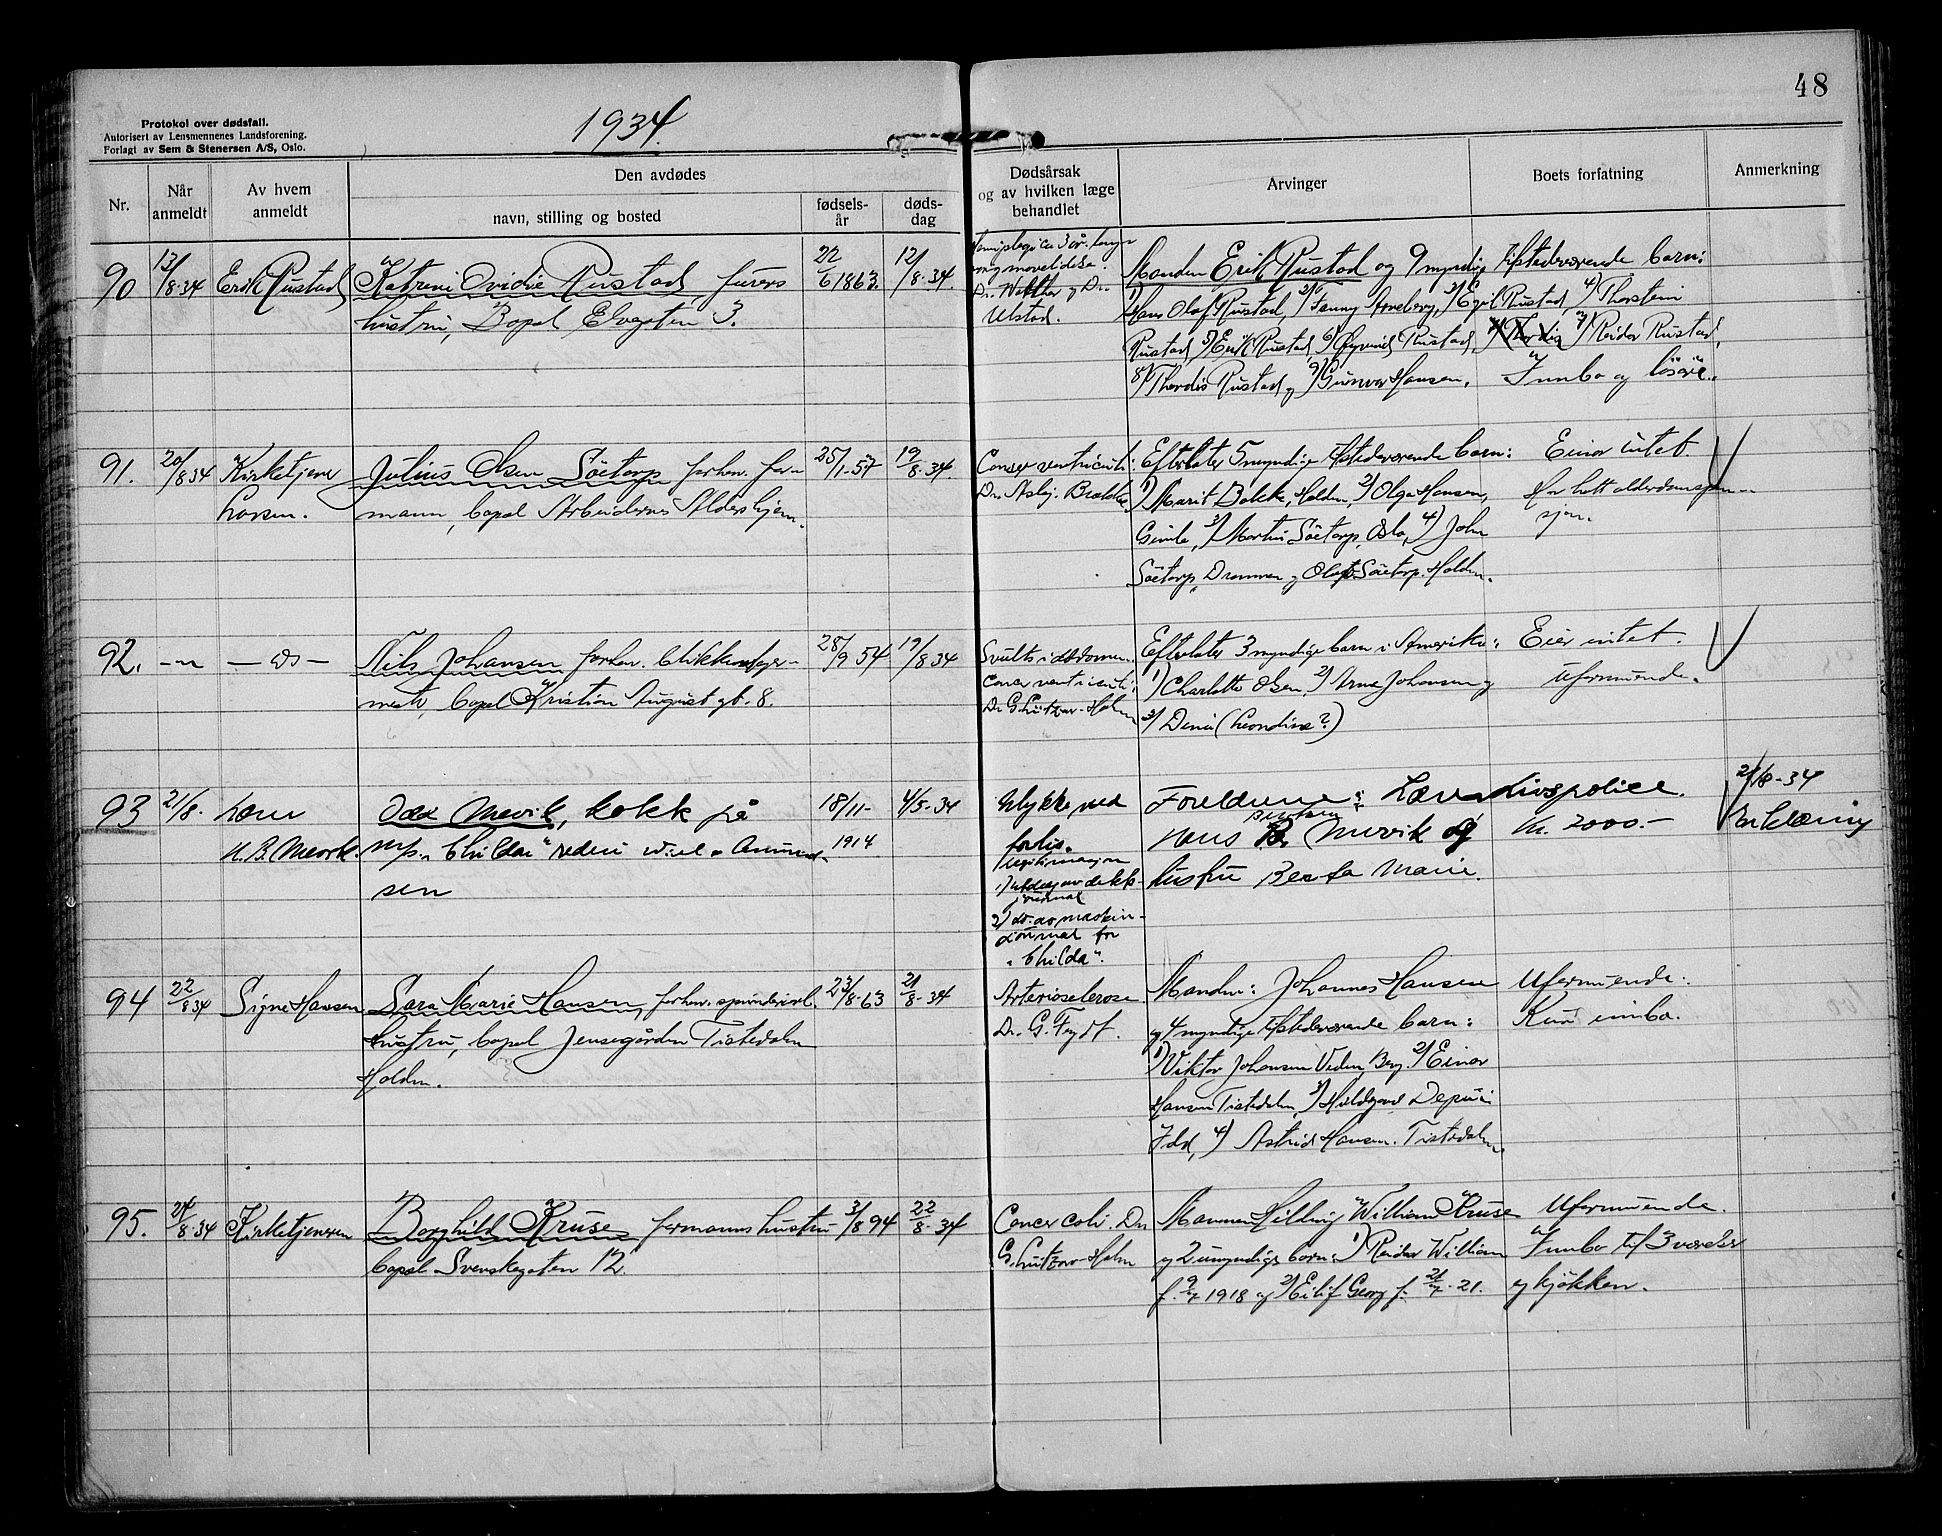 48
Protokol over dødsfall.
Autorisert av Lensmennenes Landsforening.
Forlagt av Sem & Stenersen A/S, Oslo.
1934.
Nr.
Når anmeldt
Av hvem anmeldt
Den avdødes
navn, stilling og bosted
fødsels-år
døds-dag
Dødsårsak og av hvilken læge behandlet
Arvinger
Boets forfatning
Anmerkning
90 13/8-34 Erik Rustad Katrine Ovidie Rustad, furers 22/6 1863. 12/8-34.
hustru, Bopel Elvegaten 3.
Hemiplegi ca 3 år.
Dr. Walther og Dr.
Ulstad.
Manden Erik Rustad og 9 myndig tilstedeværende barn:
1) Hans Olaf Rustad, 2) Fanny Arneberg, 3) Egil Rustad, 4) Thorstein
Rustad, 5) Erik Rustad, 6) Øyvind Rustad, 7) Reidar Rustad,
8) Thordis Rustad og 9) Gunvor Hansen.
Innbo og løsøre.
91. 20/8 34 Kirketjener Julius Olsen Sætorp forhen. for- 25/1-57 19/8-34.
Larsen. mann, bopel Arbeidernes Aldershjem.
Cancer ventriculi:
Dr. Asbj. Brække.
Efterlater 5 myndige tilstedeværende barn:
1) Marit Bakke, Halden, 2) Olga Hansen,
Gimle, 3) Martin Sætorp, Oslo, 4) John
Sætorp, Drammen og Olaf Sætorp. Halden.
Eier intet.
Har hatt alderdomspen-
sjon.
92. -"- - do - Nils Johansen forhen. blikkenslager- 28/9 54 19/8 34
mester, bopel Kristian August gt. 8.
Cancer ventriculi:
Dr. G. Lützow-Holm
Efterlater 3 myndige barn i Amerika:
1) Charlotte Olsen, 2) Arne Johansen og
3) Dina (Leondine?)
Eier intet.
Uformuende.
93 21/8. Odd Mevik, kokk på 18/11- 4/5-34
1914
m/s. "Childar" rederi Wiel & Amund-
sen
Ulykke ved
forlis.
Legitimasjon
1) Utdrag av dekks-
journal
2) do. av maskin-
journal for
"Childar".
Foreldrene:
Hans Mevik og
hustru Berta Marie.
Livspolice.
Kr. 2000.-
21/8-34
Erklæring
94 22/8 34 Signe Hansen Sara Marie Hansen, forhen. spinderiarb. 23/8-63 21/8-34
hustru, bopel Jensegården Tistedalen
Halden.
Arteriosclerose
Dr. G. Frydt.
Manden: Johannes Hansen
og 4 myndige tilstedeværende barn:
1) Viktor Johansen Veden, Berg. 2) Einar
Hansen Tistedalen, 3) Hildegard
Idd, 4) Astrid Hansen. Tistedalen
Uformuende.
Kun innbo.
95. 24/8-34 Kirketjeneren Borghild Kruse formanns hustru 3/8 94 22/8-34
bopel Svenskegaten 12.
Cancer coli. Dr.
G. Lützow-Holm
Mannen Hilding William Kruse
og 2 umyndige barn: 1) Reidar William
f. 9/7 1918 og 2) Eilif Georg f. 21/7-21.
Uformuende.
Innbo til 3 værelser
og kjøkken.